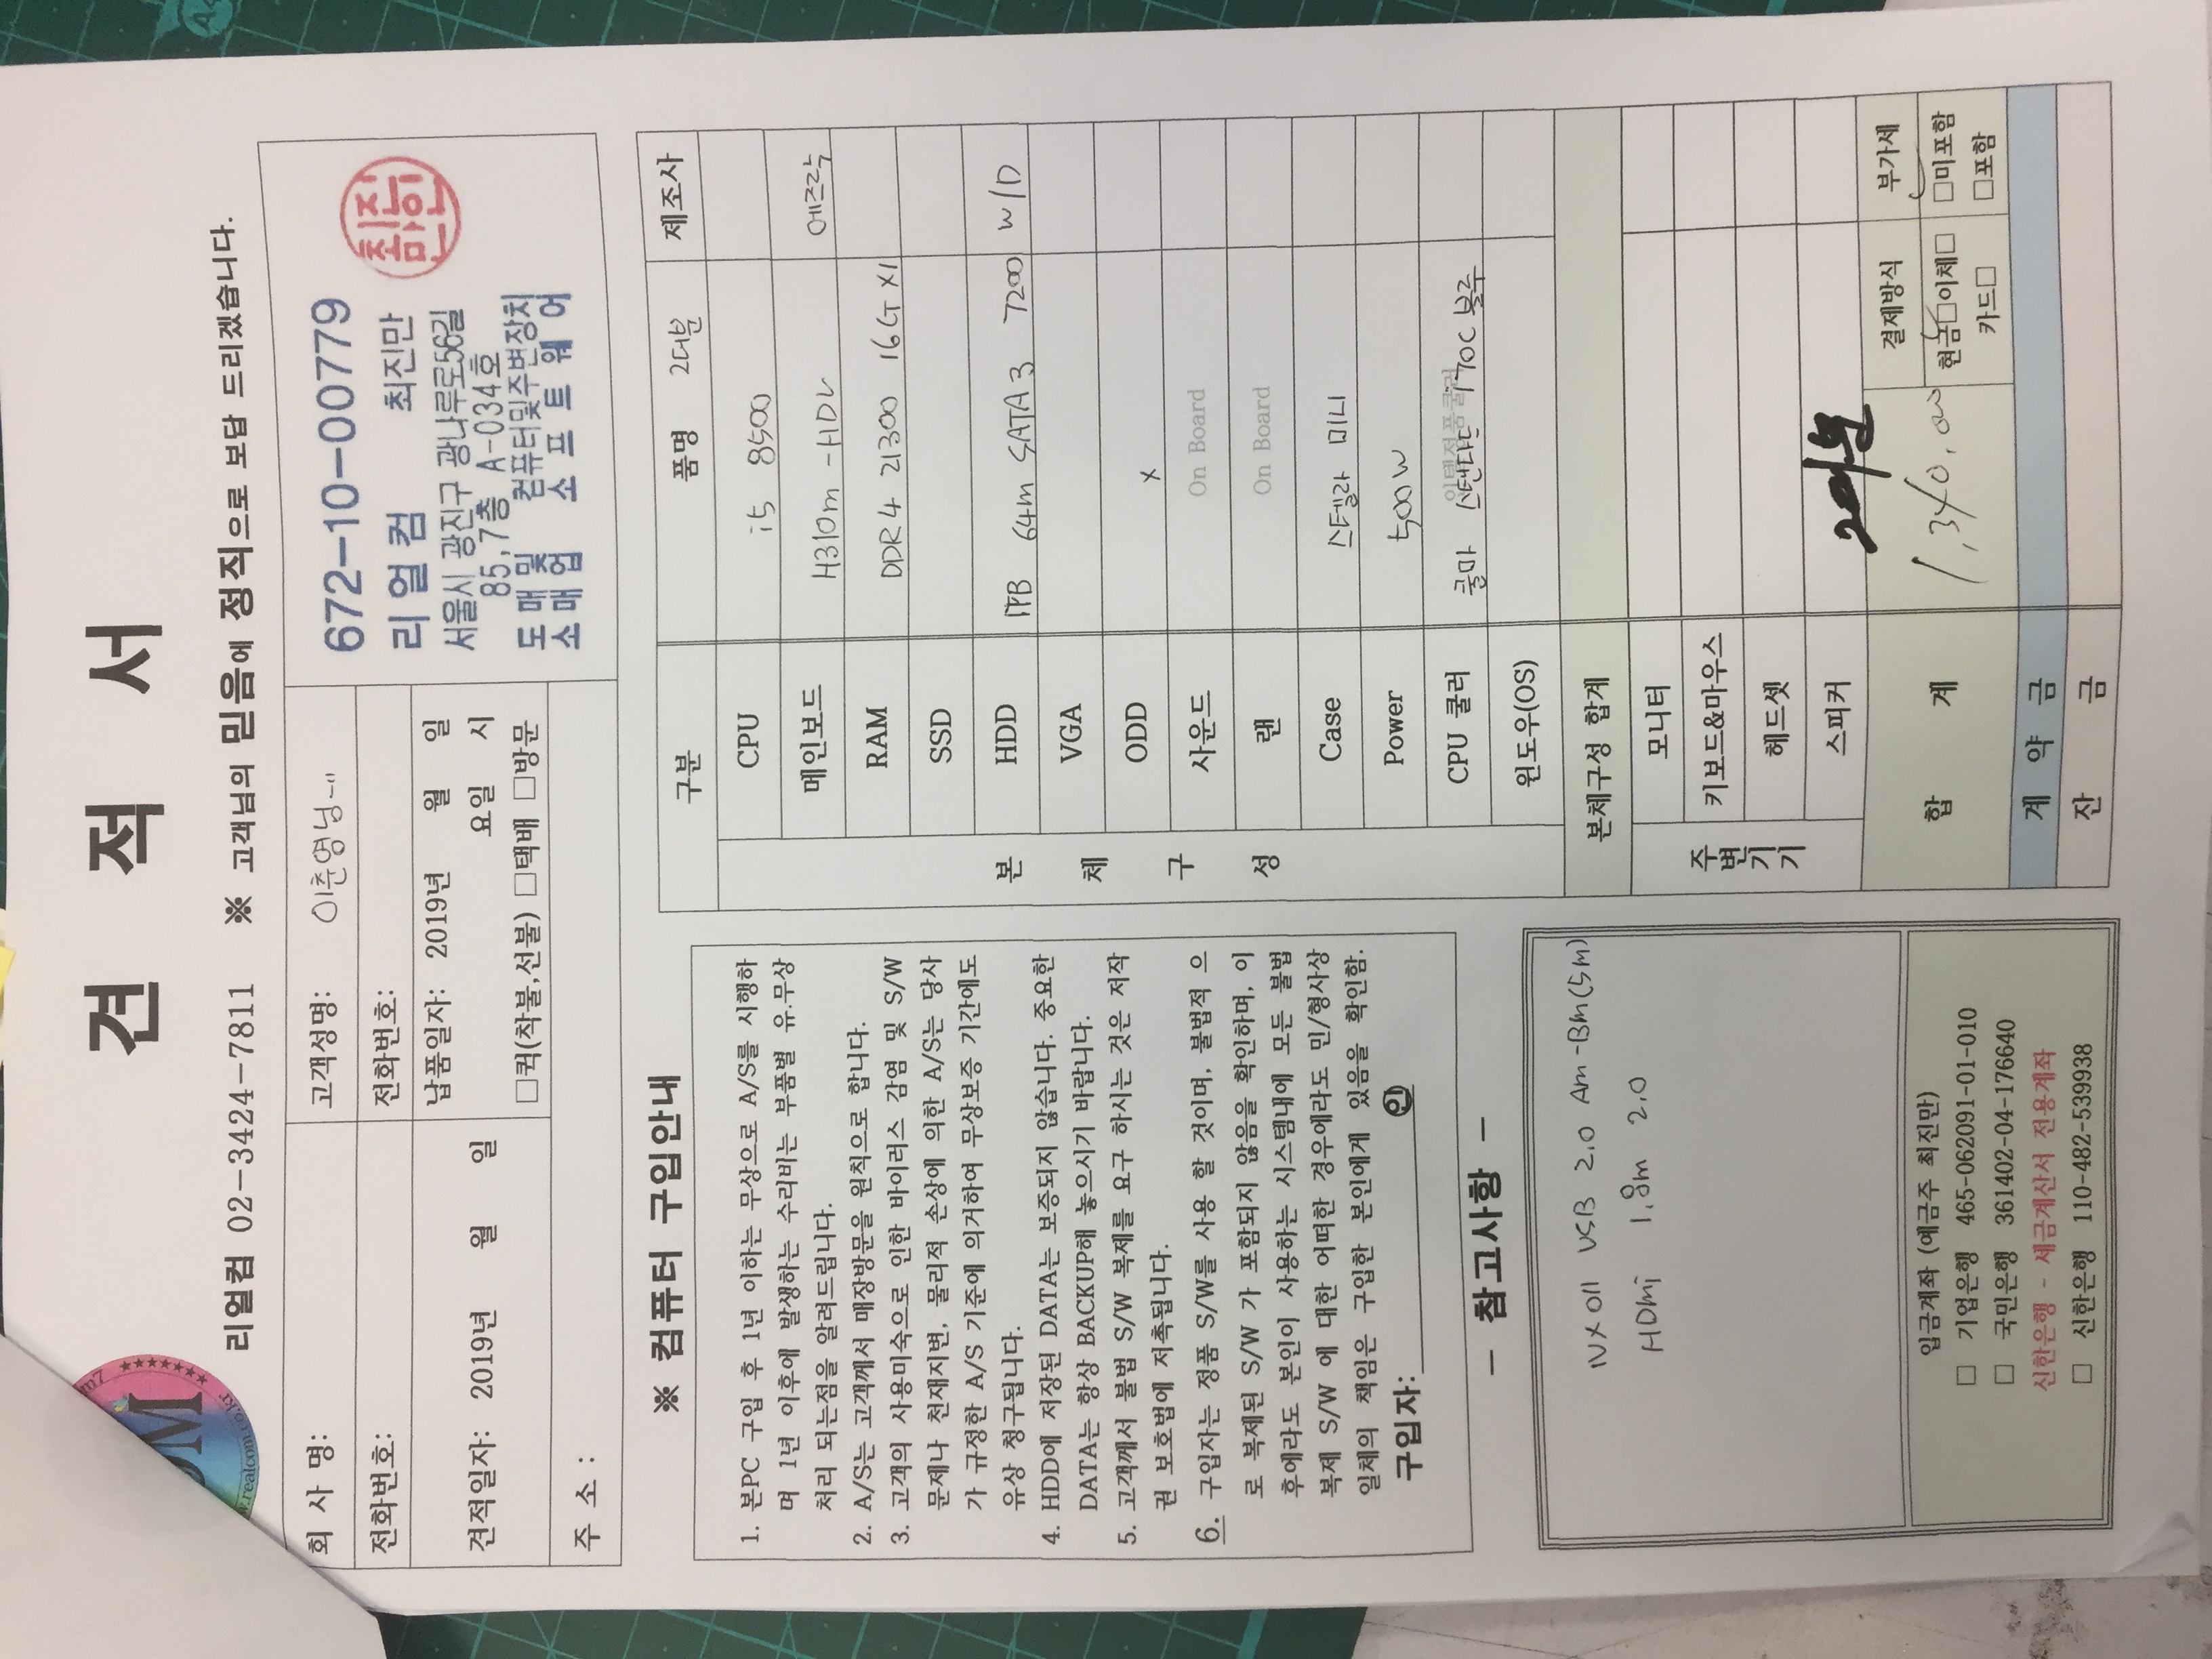 견 적 서
리얼컴 02-3424-7811 ※ 고객님의 믿음에 정직으로 보답 드리겠습니다.
m7
OM
w.realcom.co.kr
회 사 명:
고객성명: 이춘영님
전화번호:
전화번호:
견적일자: 2019년 월 일
납품일자: 2019년 월 일
요일 시
□퀵(착불,선불) □택배 □방문
주 소 :
672-10-00779
리얼컴 최진만
서울시 광진구 광나루로56길
85,7층 A-034호
도매및 컴퓨터및주변장치
소매업 소프트웨어
최진만인
※ 컴퓨터 구입안내
1. 본PC 구입 후 1년 이하는 무상으로 A/S를 시행하
며 1년 이후에 발생하는 수리비는 부품별 유.무상
처리 되는점을 알려드립니다.
2. A/S는 고객께서 매장방문을 원칙으로 합니다.
3. 고객의 사용미숙으로 인한 바이러스 감염 및 S/W
문제나 천재지변, 물리적 손상에 의한 A/S는 당사
가 규정한 A/S 기준에 의거하여 무상보증 기간에도
유상 청구됩니다.
4. HDD에 저장된 DATA는 보증되지 않습니다. 중요한
DATA는 항상 BACKUP해 놓으시기 바랍니다.
5. 고객께서 불법 S/W 복제를 요구 하시는 것은 저작
권 보호법에 저촉됩니다.
6. 구입자는 정품 S/W를 사용 할 것이며, 불법적 으
로 복제된 S/W 가 포함되지 않음을 확인하며, 이
후에라도 본인이 사용하는 시스템내에 모든 불법
복제 S/W 에 대한 어떠한 경우에라도 민/형사상
일체의 책임은 구입한 본인에게 있음을 확인함.
구입자: 인
- 참고사항 -
NX011 USB 2.0 Am-Bm(5m)
HDmi 1.8m 2.0
입금계좌 (예금주 최진만)
□ 기업은행 465-062091-01-010
□ 국민은행 361402-04-176640
신한은행 - 세금계산서 전용계좌
□ 신한은행 110-482-539938
구분 품명 2대분 제조사
본 체 구 성
CPU i5 8500
메인보드 H310m-HDV 에즈락
RAM DDR4 21300 16G X1
SSD
HDD 1TB 64m SATA3 7200 W/D
VGA
ODD X
사운드 On Board
랜 On Board
Case 스텔라 미니
Power 500W
CPU 쿨러 인텔정품쿨러 쿨마 스탠다드 i70C 블루
윈도우(OS)
본체구성 합계
주변기기
모니터
키보드&마우스
헤드셋
스피커
합 계 1,340,000
결제방식 부가세
현금□이체□ □미포함
카드□ □포함
계 약 금
잔 금